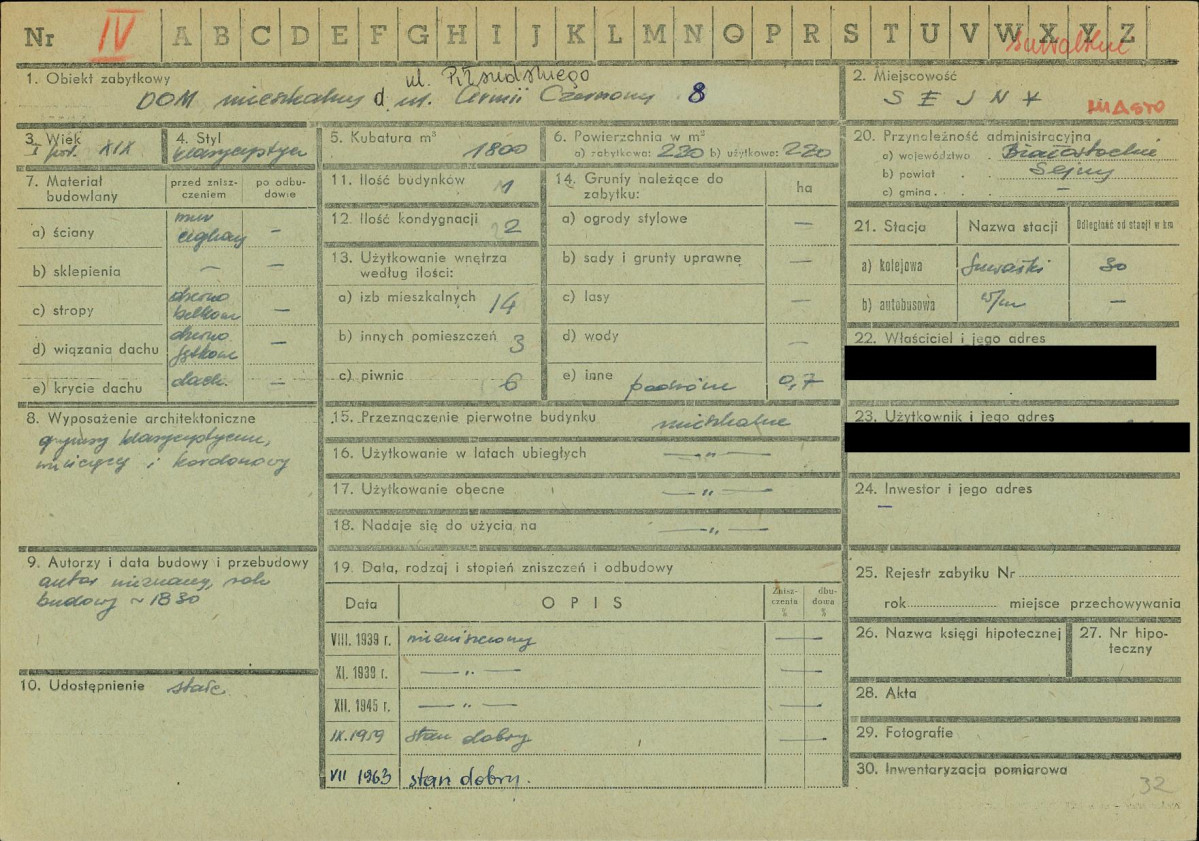 Nr IV A B C D E F G H I J K L M N O P R S T U V W X Y Z
suwalskie
1. Obiekt zabytkowy
ul. Piłsudskiego
DOM mieszkalny d. ul. Armii Czerwonej 8
2. Miejscowość
SEJNY
MIASTO
3. Wiek
I poł. XIX
4. Styl
klasycystyczn
5. Kubatura m³
1800
6. Powierzchnia w m²
a) zabytkowa: 230 b) użytkowa: 220
20. Przynależność administracyjna
a) województwo . Białostockie
b) powiat . Sejny
c) gmina . . —
7. Materiał budowlany
przed zniszczeniem
po odbudowie
a) ściany
mur
cegłany —
b) sklepienia — —
c) stropy
drewno
belkowe —
d) wiązania dachu
drewno
jętkowe —
e) krycie dachu dach. —
11. Ilość budynków 1
12. Ilość kondygnacji 2
13. Użytkowanie wnętrza
według ilości:
a) izb mieszkalnych 14
b) innych pomieszczeń 3
c) piwnic 6
14. Grunty należące do
zabytku:
ha
a) ogrody stylowe —
b) sady i grunty uprawne —
c) lasy —
d) wody —
e) inne podwórze 0,7
21. Stacja
Nazwa stacji
Odległość od stacji w km
a) kolejowa Suwałki 30
b) autobusowa w/m —
22. Właściciel i jego adres
23. Użytkownik i jego adres
8. Wyposażenie architektoniczne
gzymsy klasycystyczne,
wieńczący i kordonowy
15. Przeznaczenie pierwotne budynku mieszkalne
16. Użytkowanie w latach ubiegłych —„—
17. Użytkowanie obecne —„—
18. Nadaje się do użycia na —„—
24. Inwestor i jego adres
—
9. Autorzy i data budowy i przebudowy
autor nieznany, rok
budowy ~ 1830
19. Data, rodzaj i stopień zniszczeń i odbudowy
Data
OPIS
Zniszczenia %
dbudowa %
VIII. 1939 r. niezniszczony —
XI. 1939 r. —„— —
XII. 1945 r. —„— —
IX.1959 stan dobry —
VII 1963 stan dobry.
10. Udostępnienie stałe
25. Rejestr zabytku Nr
rok miejsce przechowywania
26. Nazwa księgi hipotecznej
27. Nr hipoteczny
28. Akta
29. Fotografie
30. Inwentaryzacja pomiarowa
32